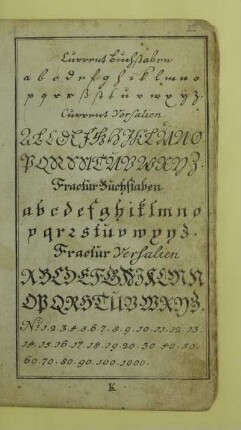 Current Buchstaben
a b c d e f g h i k l m n o
p q r r s ß s t u v w x y z.
Current Versalien
A B C D E F G H I K L M N O
P Q R S S T U V W X Y Z.
Fractur Buchstaben
a b c d e f g h i k l m n o
p q r z s t u v w y y z.
Fractur Versalien
A B C D E F G H I K L M N
O P Q R S T U V W X Y Z.
No: 1. 2. 3. 4. 5. 6. 7. 8. 9. 10. 11. 12. 13.
14. 15. 16. 17. 18. 19. 20. 30. 40. 50.
60. 70. 80. 90. 100. 1000.
K